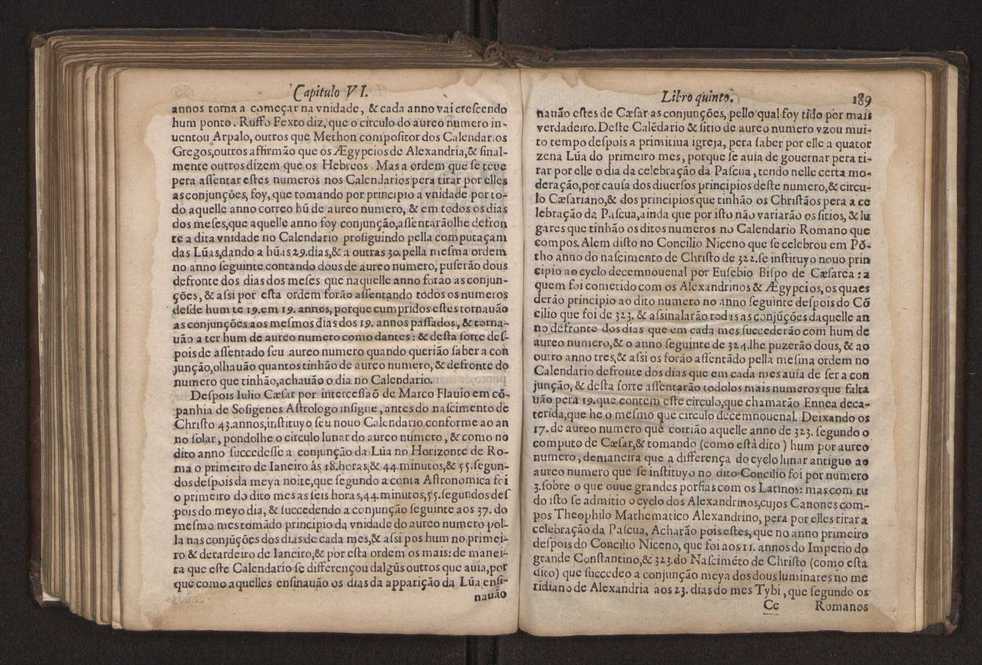 Capitulo VI.
annos torna a começar na vnidade, & cada anno vai crescendo
hum ponto. Ruffo Fexto diz, que o circulo do aureo numero in-
uentou Arpalo, outros que Methon compositor dos Calendarios
Gregos, outros affirmão que os Ægypcios de Alexandria, & final-
mente outros dizem que os Hebreos. Mas a ordem que se teue
pera assentar estes numeros nos Calendarios pera tirar por elles
as conjunções, foy, que tomando por principio a vnidade por to-
do aquelle anno correo hũ de aureo numero, & em todos os dias
dos meses, que aquelle anno foy conjunção, assentarãolhe defron
te a dita vnidade no Calendario prosiguindo pella computaçam
das Lũas, dando a hũas 29. dias, & a outras 30. pella mesma ordem
no anno seguinte contando dous de aureo numero, puserão dous
defronte dos dias dos meses que naquelle anno forão as conjun-
ções, & assi por esta ordem forão assentando todos os numeros
desde hum te 19. em 19. annos, porque cumpridos estes tornauão
as conjunções aos mesmos dias dos 19. annos passados, & torna-
uão a ter hum de aureo numero como dantes: & desta sorte des-
pois de assentado seu aureo numero quando querião saber a con
junção, olhauão quantos tinhão de aureo numero, & defronte do
numero que tinhão, achauão o dia no Calendario.
Despois Iulio Cæsar por intercessaõ de Marco Flauio em cõ-
panhia de Sosigenes Astrologo insigne, antes do nascimento de
Christo 43. annos, instituyo seu nouo Calendario conforme ao an
no solar, pondolhe o circulo lunar do aureo numero, & como no
dito anno succedesse a conjunção da Lũa no Horizonte de Ro-
ma o primeiro de Ianeiro às 18. horas, & 44. minutos, & 55. segun-
dos despois da meya noite, que segundo a conta Astronomica foi
o primeiro do dito mes as seis horas, 44. minutos, 55. segundos des
pois do meyo dia, & succedendo a conjunção seguinte aos 37. do
mesmo mes tomãdo principio da vnidade do aureo numero pol-
la nas conjũções dos dias de cada mes, & assi pos hum no primei-
ro & derardeiro de Ianeiro, & por esta ordem os mais: de manei-
ra que este Calendario se differençou dalgũs outros que auia, por
que como aquelles ensinauão os dias da apparição da Lũa ensi-
nauão
Libro quinto. 189
nauão estes de Cæsar as conjunções, pello qual foy tido por mais
verdadeiro. Deste Calẽdario & sitio de aureo numero vzou mui-
to tempo despois a primitiua igreja, pera saber por elle a quator
zena Lũa do primeiro mes, porque se auia de gouernar pera ti-
rar por elle o dia da celebração da Pascua, tendo nelle certa mo-
deração, por causa dos diuersos principios deste numero, & circu-
lo Cæsariano, & dos principios que tinhão os Christãos pera a ce
lebração da Pascua, ainda que por isto não variarão os sitios, & lu
gares que tinhão os ditos numeros no Calendario Romano que
compos. Alem disto no Concilio Niceno que se celebrou em Põ-
tho anno do nascimento de Christo de 322. se instituyo nouo prin
cipio ao cyclo decemnouenal por Eusebio Bispo de Cæsarea: a
quem foi cometido com os Alexandrinos & Ægypcios, os quaes
derão principio ao dito numero no anno seguinte despois do Cõ
cilio que foi de 323. & assinalarão todas as conjũções daquelle an
no defronte dos dias que em cada mes succederão com hum de
aureo numero, & o anno seguinte de 324. lhe puzerão dous, & ao
outro anno tres, & assi os forão assentãdo pella mesma ordem no
Calendario defronte dos dias que em cada mes auia de ser a con
junção, & desta sorte assentarão todolos mais numeros que falta
uão pera 19. que contem este circulo, que chamarão Ennea deca-
terida, que he o mesmo que circulo decemnouenal. Deixando os
17. de aureo numero quẽ corrião aquelle anno de 323. segundo o
computo de Cæsar, & tomando (como està dito) hum por aureo
numero, demaneira que a differença do cyclo lunar antiguo ao
aureo numero que se instituyo no dito Concilio foi por numero
3. sobre o que ouue grandes porfias com os Latinos: mas com tu
do isto se admitio o cyclo dos Alexandrinos, cujos Canones com-
pos Theophilo Mathematico Alexandrino, pera por elles tirar a
celebração da Pascua, Acharão pois estes, que no anno primeiro
despois do Concilio Niceno, que foi aos 11. annos do Imperio do
grande Constantino, & 323. do Nascimẽto de Christo (como està
dito) que succedeo a conjunção meya dos dous luminares no me
ridiano de Alexandria aos 23. dias do mes Tybi, que segundo os
Cc Romanos